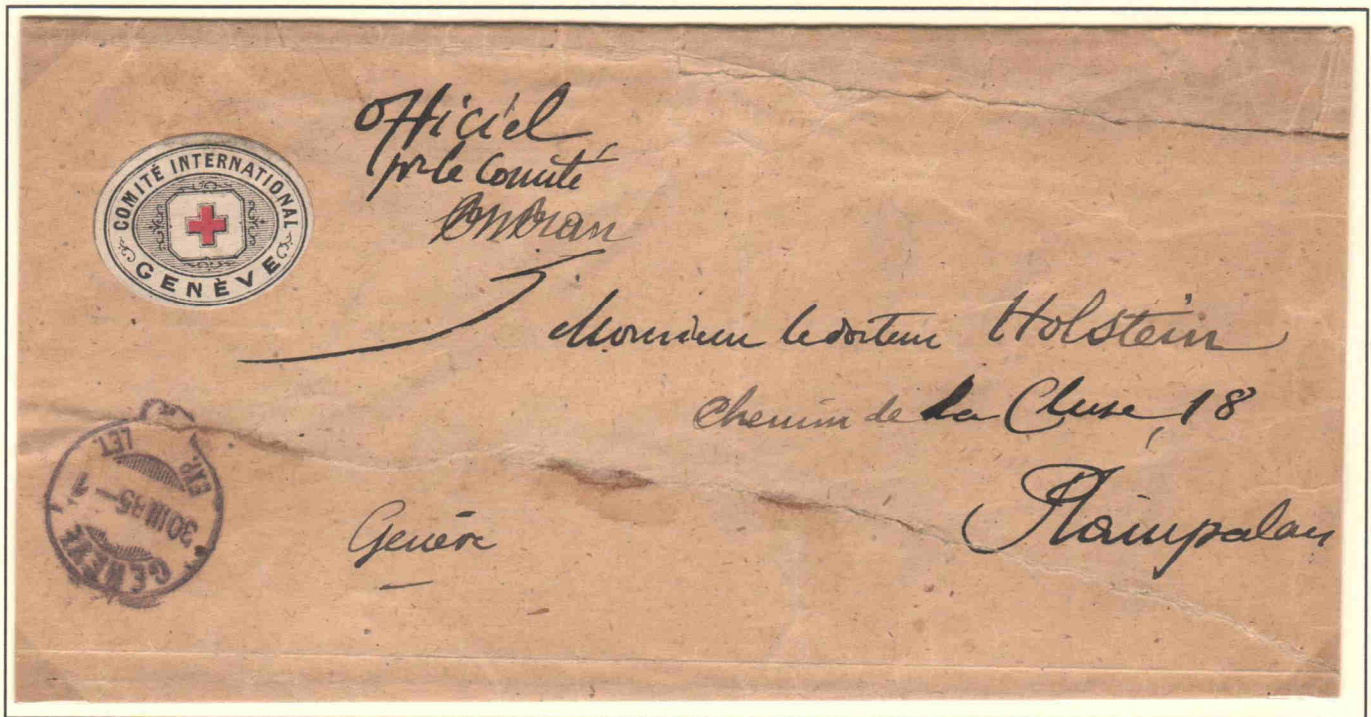 COMITÉ INTERNATIONAL
GENÈVE
Officiel
pr le Comité
Monsieur le docteur Holstein
Chemin de la Cluse, 18
Plainpalais
Genève
GENÈVE
30 III 85
EXP. LET.